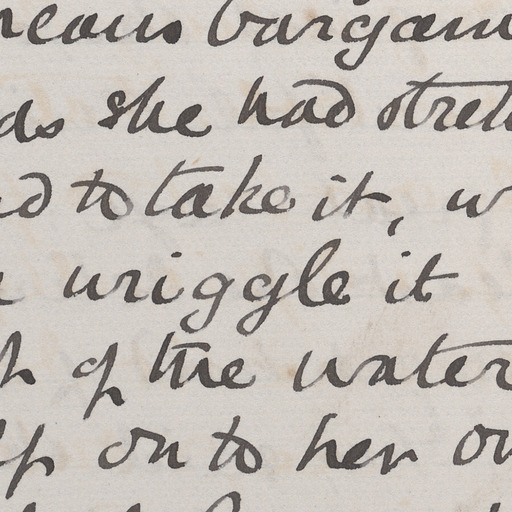 neous bargain
ds she had stret
d to take it, w
wriggle it
h of the water
on to her ow